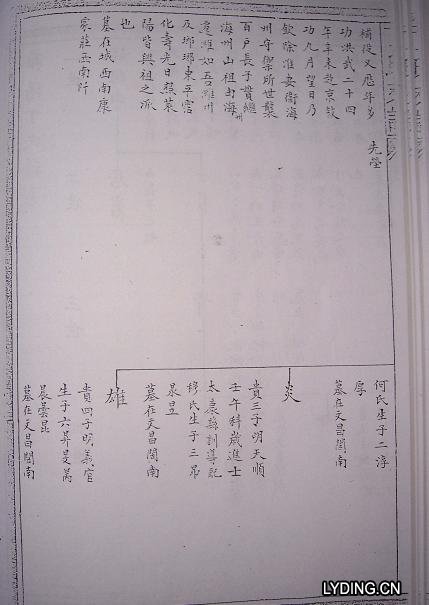 補從又歷年多 先塋
功洪武二十四
年辛未赴京敘
功九月望日乃
欽除淮安衛海
州守禦所世襲
百戶長子貫繼
海州山祖出海州
遷濰如吾濰州
及瑯琊東平雲
化壽光日照萊
陽皆與祖之派
也
墓在城西南康
家莊西南阡
何氏生子二淳
厚
墓在文昌閣南
炎
貴三子明天順
壬午科歲進士
太康縣訓導配
穆氏生子三昂
杲昱
墓在文昌閣南
雄
貴四子明義官
生子六昇旻昺
晨曇昆
墓在文昌閣南
LYDING.CN